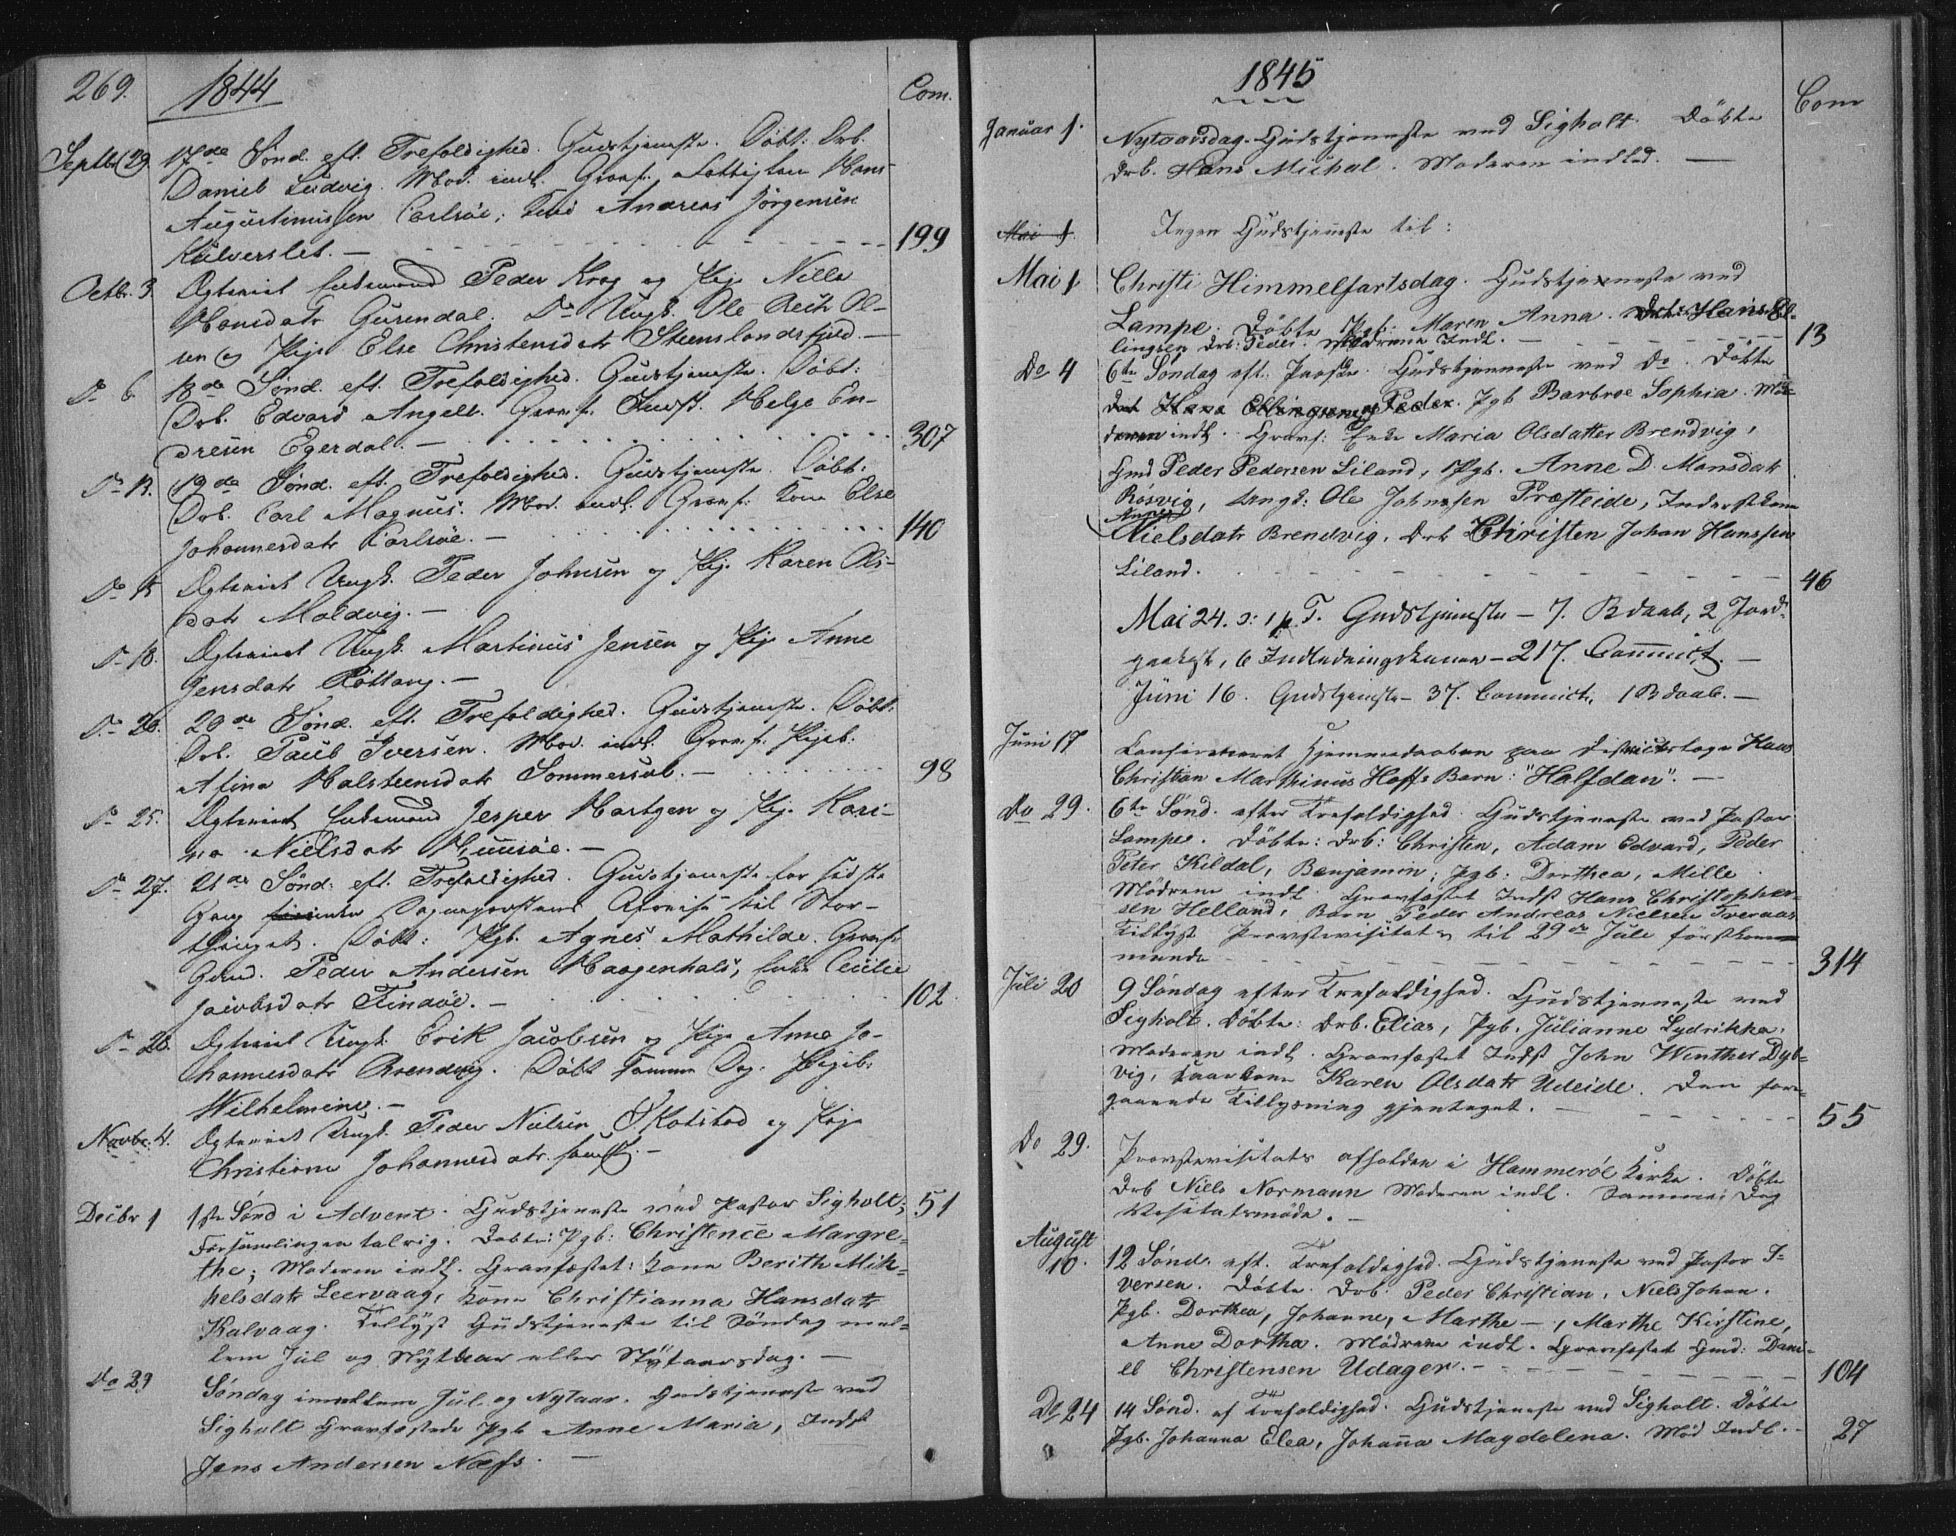 269. 1844 Com.
Septbr 29. 17de Sönd. eft. Trefoldighed. Gudstjeneste. Döbt: Drb.
Daniel Ludvig. Mod. indl. Gravf. Fattiglem Hans
Augustinussen Carlsöe; Andreas Jörgensen
Kalverslet. — 199
Octbr. 3. Ægteviet Enkemand Peder Krog og Pige Nille
Monsdatr Gurendal. Do Ungk. Ole Reich Ol-
sen og Pige Else Christensdatr Steenslandsfjord. —
Do 6. 18de Sönd. eft. Trefoldighed. Gudstjeneste. Döbt:
Drb. Edvard Angell. Gravf. Indst. Helge En-
dresen Egerdal. — 307
Do 13. 19de Sönd. eft. Trefoldighed. Gudstjeneste. Döbt:
Drb. Carl Magnus. Mod. indl. Gravf. Kone Else
Johannesdatr Carlsöe. — 140
Do 15. Ægteviet Ungk. Peder Johnsen og Pige Karen Ols-
datr Moldvig. —
Do 18. Ægteviet Ungk. Martinus Jensen og Pige Anne
Jensdatr Röttang. —
Do 20. 20de Sönd. eft. Trefoldighed. Gudstjeneste. Döbt:
Drb. Paul Iversen. Mod. indl. Gravf. Pigeb.
Afina Halsteensdatr Sommersæl. — 98
Do 25. Ægteviet Enkemand Jesper Hartgen og Pige Kari-
na Nielsdatr —
Do 27. 21de Sönd. eft. Trefoldighed. Gudstjeneste for sidste
Gang Sognepræstens Afreise til Stor-
thinget. Döbt: Pgb. Agnes Mathilde. Gravf.
Gmd. Peder Andersen Haagenhals, Enke Cecilie
Jacobsdatr Tindöe. — 102
Do 28. Ægteviet Ungk. Erik Jacobsen og Pige Anne Jo-
hannesdatr Brendvig. Döbt samme Dag: Pigeb:
Wilhelmine. —
Novbr. 4. Ægteviet Ungk. Peder Nielsen Skotstad og Pige
Christiane Johannesdatr samst. —
Decbr 1 1ste Sönd i Advent. Gudstjeneste ved Pastor Sigholt; 51
Forsamlingen talrig. Döbte: Pgb: Christence Margre-
the; Moderen indl. Gravfæstet: Kone Berith Mik-
kelsdatr Leervaag, Kone Christianna Hansdatr
Kalvaag. Tillyst Gudstjeneste til Söndag mel-
lem Jul og Nytaar eller Nytaarsdag. —
Do 29 Söndag imellem Jul og Nytaar. Gudstjeneste ved
Sigholt Gravfæstede Pgb Anne Maria, Indst
Jens Andersen Næss. —
1845 Com
Januar 1. Nytaarsdag. Gudstjeneste ved Sigholt. Döbte
Drb. Hans Michal. Moderen indled. —
Mai 1. Ingen Gudstjeneste til:
Mai 1 Christi Himmelfartsdag. Gudstjeneste ved
Lampe. Döbte Pgb: Maren Anna. Drb: Hans El-
lingsen Drb: Peder. Mödrene Indl. — 13
Do 4 6te Söndag eft. Paaske. Gudstjeneste ved Do. Döbte
Drb Hans Ellingsen og Peder. Pgb Barbroe Sophia. Mö-
deren indl. Gravf: Enke Maria Olsdatter Brendvig,
Gmd Peder Pedersen Liland, Pgb. Anne D. Monsdatr
Rösvig, Ungk: Ole Johnsen Præsteide, Inderstkone
Anne
Nielsdatr Brendvig, Drb Christen Johan Hanssen
Liland. 46
Mai 24. o: 1 p. T. Gudstjeneste — 7. B daab, 2 Jord-
paakast, 6 Indledningskoner — 217. Communict. —
Juni 16. Gudstjeneste — 37. Communict. 1 B daab. —
Juni 17 Confirmeret Hjemmedaaben paa Districtslæge Hans
Christian Marthinus Hoffs Barn: "Halfdan". —
Do 29. 6te Sönd. efter Trefoldighed. Gudstjeneste ved Pastor
Lampe. Döbte: Drb: Christen, Adam Edvard, Peder
Peter Kildal, Benjamin; Pgb: Dorthea, Mille
Mödrene indl. Gravfæstet Indst Hans Christopher-
sen Helland, Barn Peder Andreas Nielsen Tveraas
Tillyst Provstevisitats til 29de Juli förstkom-
mende 314
Juli 20 9 Söndag efter Trefoldighed. Gudstjeneste ved
Sigholt. Döbte: Drb. Elias, Pgb. Julianne Lydrikka.
Moderen indl. Gravfæstet Indst John Winther Dyb-
vig, Kaarkone Karen Olsdatr Udeide. Den fore-
gaaende Tillysning gjentaget. — 55
Do 29. Provstevisitats afholden i Hammeröe Kirke. Döbte
Drb Niels Normann Moderen indl. Samme Dag
Visitatsmöde. —
August
10. 12 Sönd. eft. Trefoldighed. Gudstjeneste ved Pastor I-
versen. Döbte. Drb. Peder Christian, Niels Johan.
Pgb. Dorthea, Johanne, Marthe —, Marthe Kirstine,
Anne Dortha. Mödrene indl. Gravfæstet Gmd: Dani-
el Christensen Udager. — 104
Do 24 14 Sönd. ef Trefoldighed. Gudstjeneste ved Sigholt. Döbte
Pgb. Johanna Elea, Johanna Magdelena. Mod Indl. — 27